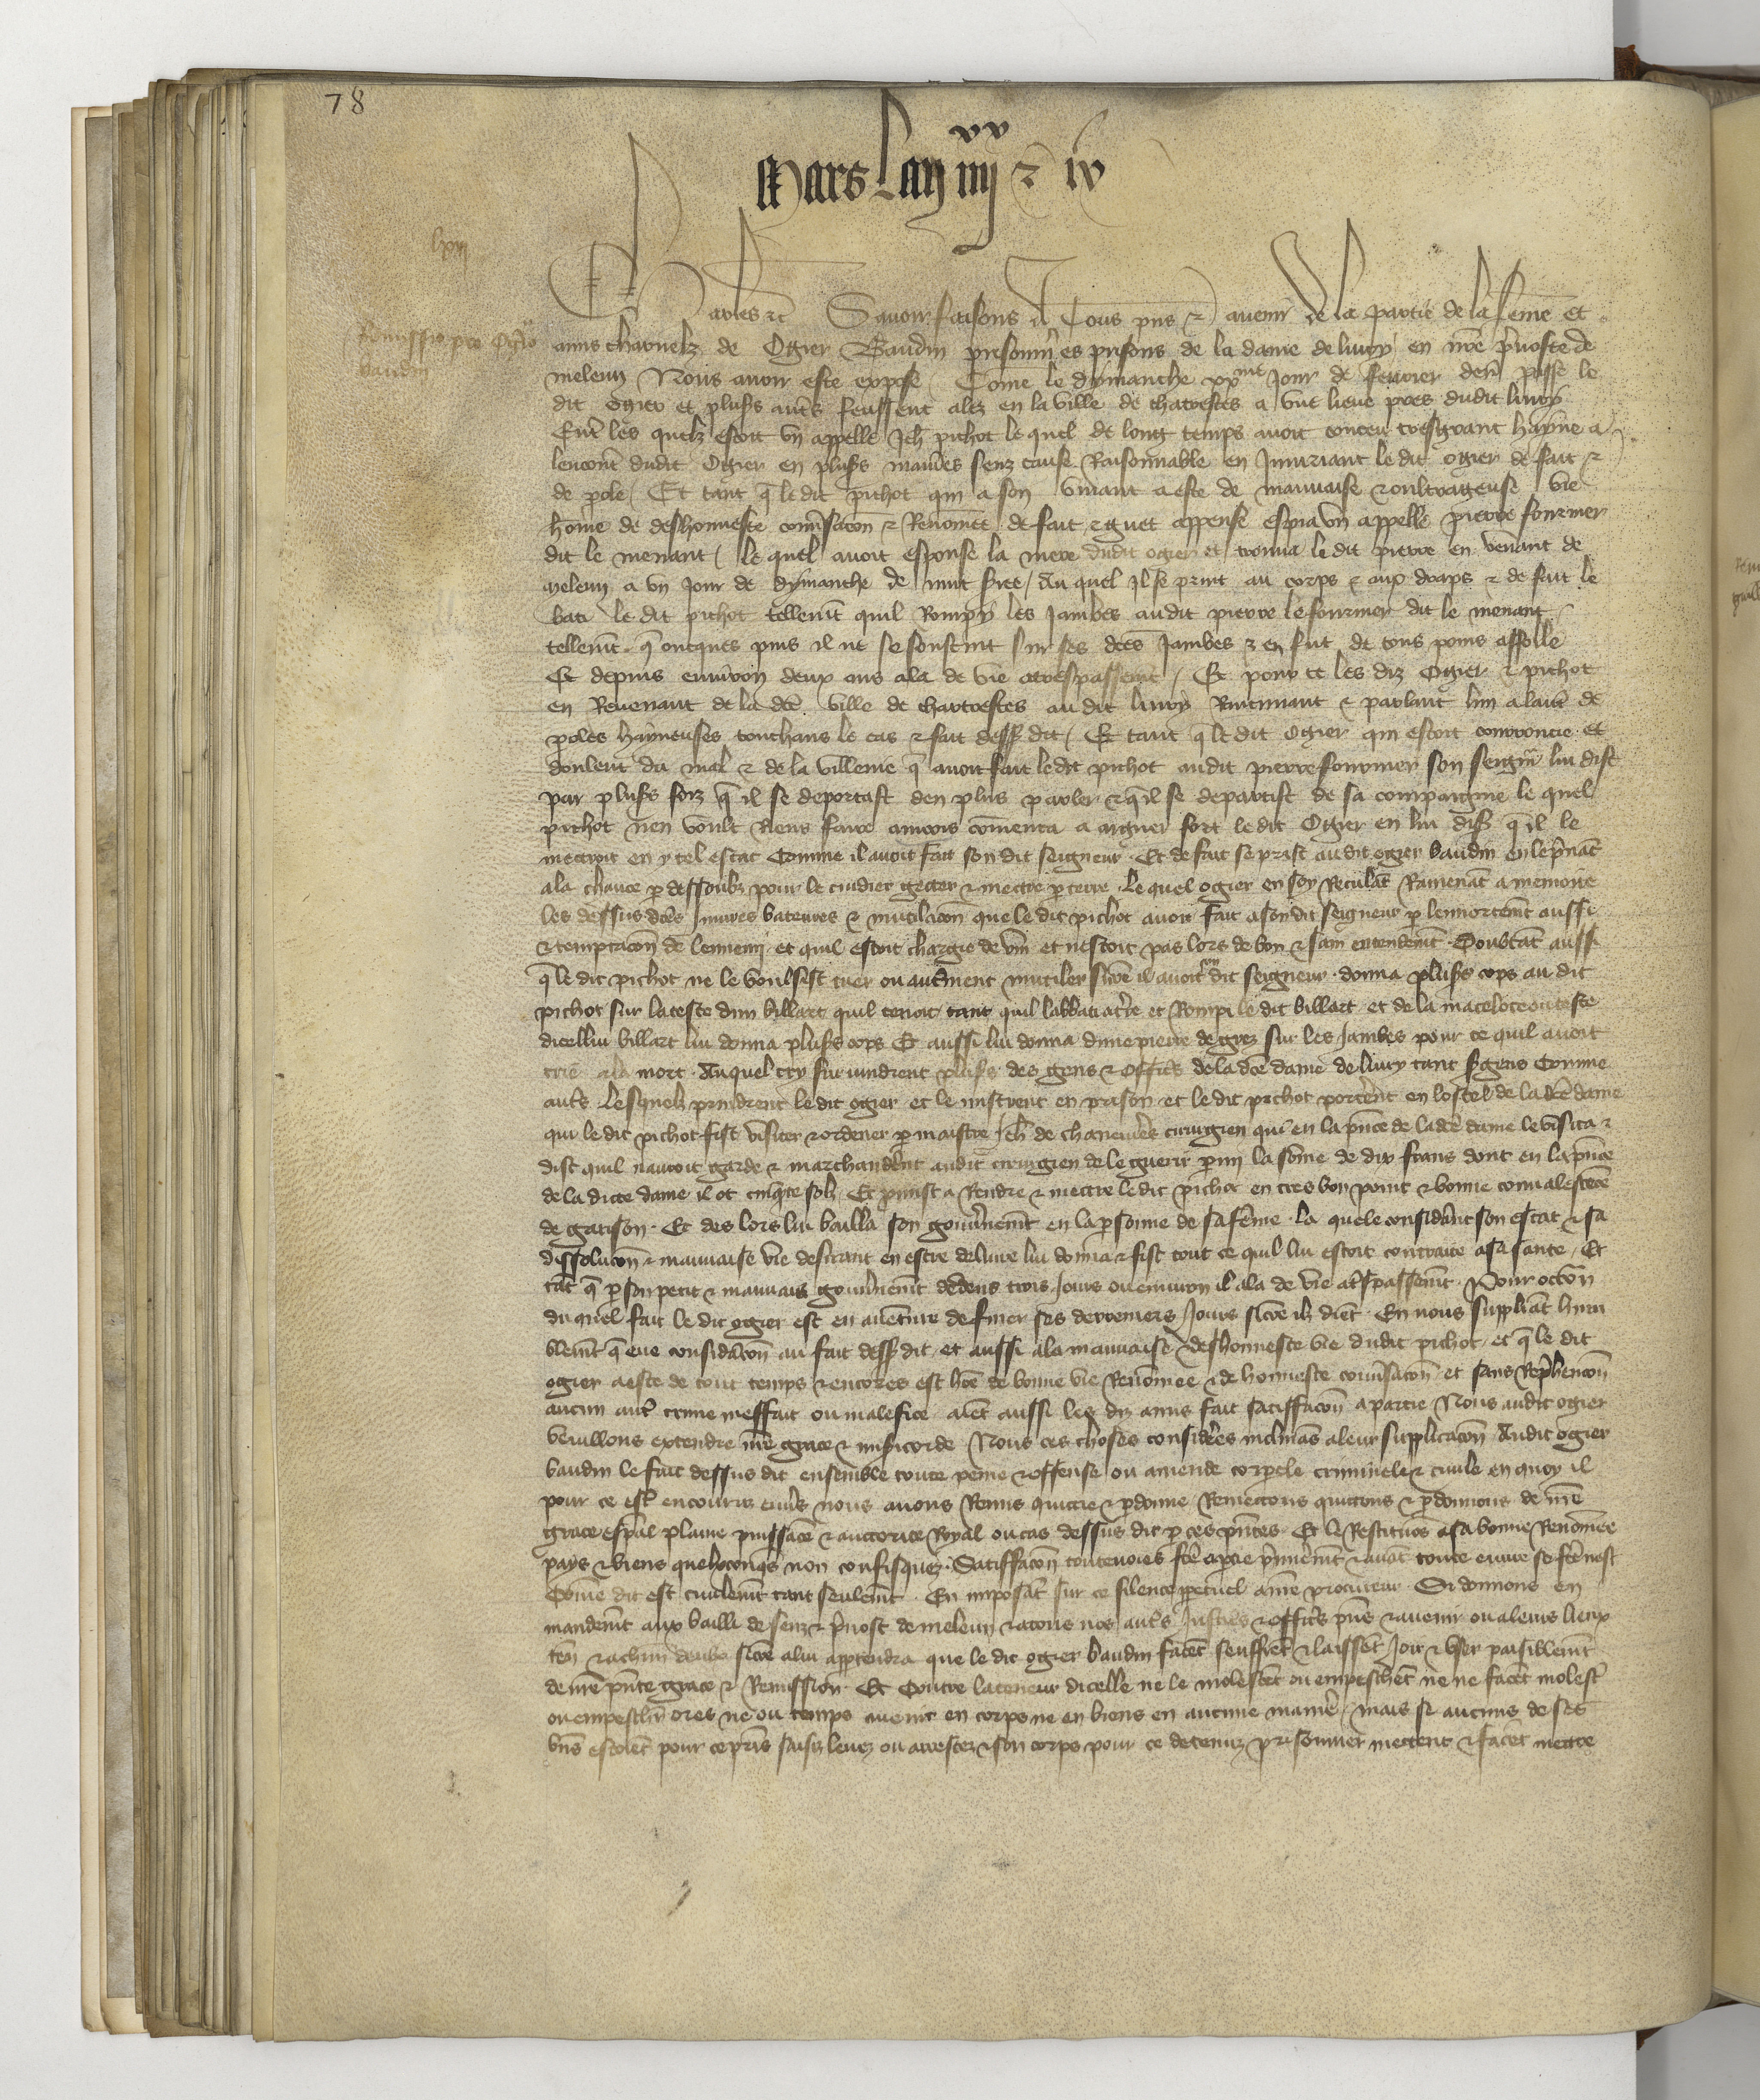 78
Mars Lan iiij xx & iv
lxvij
Remissio pro Ogero
baudin
Charles etc Savoir faisons A Tous pns & avenir De la partie de la feme et
amis charnelz de Ogier Baudin prisonnr es prisons de la dame de livry en nre prevoste de
meleun Nous avoir este expose Come le dymanche xxme Jour de fevrier derr passe le
dit ogier et pluss autres feussent alez en la ville de chartrestes a une lieue pres dudit livry
Entre les quelz estoit un appelle Jeh pichot le quel de long temps avoit conceu tresgrant hayne a
lencont dudit Ogier en pluss manieres senz cause Raisonnable en Injuriant le dit ogier de fait &
de pole Et tant q le dit pichot qui a son vivant a este de mauvaise & oultrageuse vie
home de deshonneste conversacon & Renomee de fait & guet appense espia un appelle pierre fourmer
dit le menant le quel avoit espouse la mere dudit ogier et trouva le dit pierre en venant de
meleun a un Jour de dymanche de nuit Au quel Il se print au corps & aux draps & de fait le
bati le dit pichot tellemt quil Rompy les Jambes audit pierre le fourmer dit le menant
tellemt q oncques puis il ne se soustint sur ses dces Jambes & en fut de tous poins affolle
Et depuis environ deux ans ala de vie a trespassemt Et pour ce les diz Ogier & pichot
en Revenant de la dce ville de chartrestes au dit livry Rioctinant & parlant lun a lautre de
poles hayneuses touchans le cas & fait dessus dit Et tant q le dit Ogier qui estoit couroucie et
doulent du mal & de la villenie q avoit fait le dit pichot audit pierre fourmer son seignr lui dist
par pluss foiz q il se deportast den plus parler & q il se departist de sa compaignie le quel
pichot nen voult Riens faire aincois comenca a arguer fort le dit Ogier en lui diss q il le
mectroit en ytel estat Comme il avoit fait son dit seigneur Et de fait se prist audit ogier baudin en le prnat
a la chance p dessoubz pour le cuidier getter & mectre p terre Le quel ogier en soy Reculat Ramenat a memoire
les dessus dces Jnures bateures & mutilacon que le dit pichot avoit fait a son dit seigneur p lenortemt aussi
& temptacon de lennemi et quil estoit chargie de vin et nestoit pas lors de bon & sain entendemt Doubtat aussi
q le dit pichot ne le voulsist tuer ou autrement mutiler sicoe il avoit son dit seigneur donna pluss cops au dit
pichot sur la teste dun billart quil tenoit tant quil labbati a tre et Rompi le dit billart et de la maceloce ou teste
dicellui billart lui donna pluss cops Et aussi lui donna dune pierre de grez sur les Jambes pour ce quil avoit
crie a la mort Auquel cry survindrent pluss des gens & officrs de la dce dame de livry tant sergens Comme
auts Lesquelz prindrent le dit ogier et le mistrent en prison et le dit pichot portent en lostel de la dce dame
qui le dit pichot fist visiter & ordener p maistre Jeh de chanevieres cirurgien qui en la pnce de la dce dame le visita &
dist quil navoit garde & marchandrent audit cirurgien de le guerir pmi la some de dix frans dont en la pnce
de la dicte dame il ot cinqte solz Et pmist a Rendre & mectre le dit pichot en tres bon point & bonne convalescece
de garison Et des lors lui bailla son gouvernemt en la psonne de sa feme La quele considrant son estat & sa
dissolucon & mauvaise vie desirant en estre delivre lui donna & fist tout ce quil lui estoit contraire a sa sante Et
tat q p son petit & mauvais gouvernemt dedens trois Jours ou environ il ala de vie a trespassemt Pour occon
du quel fait le dit ogier est en aventure de finer ses derreniers Jours sicoe ilz diet En nous suppliat hum
blemt q eue consideracon au fait dessus dit et aussi a la mauvaise & deshonneste vie dudit pichot et q le dit
ogier a este de tout temps & encores est hoe de bonne vie Renomee & de honneste conversacon et sans Reprehencon
aucun autre crime meffait ou malefice aiet aussi les diz amis fait satiffacon a partie Nous audit ogier
veuillons extendre nre grace & misericorde Nous ces choses considerees inclinas a leur supplicacon Audit ogier
baudin le fait dessus dit ensemble toute peine & offense ou amende corpele criminele & civile en quoy il
pour ce est encouruz envers nous avons Remis quictie & pdonne Remectons quictons & pdonnons de nre
grace espal plaine puissace & auctorite Royal ou cas dessus dit p ces pntes Et le Restituos a sa bonne Renomee
pays & biens quelxconqs non confisquez Satiffacon toutevoies fce a ptie pmieremt & avat toute euvre se fce nest
Come dit est civilemt tant seulemt En imposat sur ce silence ppetuel a nre procureur Si donnons en
mandemt aux bailli de senz & pvost de meleun & a tous nos auts Justices & officrs pns & avenir ou a leurs lieux
ten & a chun deulx sicoe a lui apptendra que le dit ogier baudin facet seuffret & laisset Joir & user paisiblemt
de nre pnte grace & Remission Et Contre la teneur dicelle ne le molestet ou empeschet ne ne facet molestr
ou empeschr ores ne ou temps avenir en corps ne en biens en aucune manie mais se aucuns de ses
bns estoiet pour ce pris saisiz levez ou arrestez & son corps pour ce detenuz prisonnier mectent & facet mectre